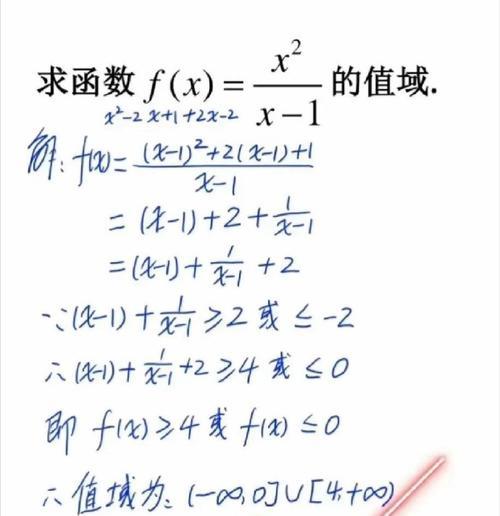 求函数 f(x) = x²/(x−1) 的值域.
x²-2x+1+2x-2
解: f(x)= ((x-1)²+2(x-1)+1)/(x-1)
= (x-1)+2+1/(x-1)
=(x-1)+1/(x-1)+2
∵(x-1)+1/(x-1)≥2 或 ≤-2
∴(x-1)+1/(x-1)+2≥4 或 ≤0
即 f(x)≥4 或 f(x)≤0
∴值域为: (-∞,0]∪[4,+∞)